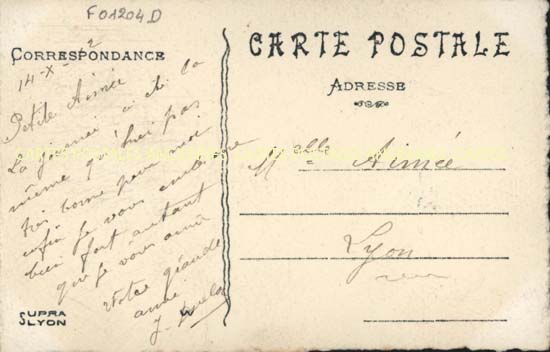 F01204D
CORRESPONDANCE
CARTE POSTALE
ADRESSE
14-X-2
Petite Aimée
La journée a été la
même qu'hier pas
très bonne pour moi
enfin je vous embrasse
bien fort autant
que je vous aime
votre grande
amie
J.
Melle Aimée
Lyon
SUPRA
LYON